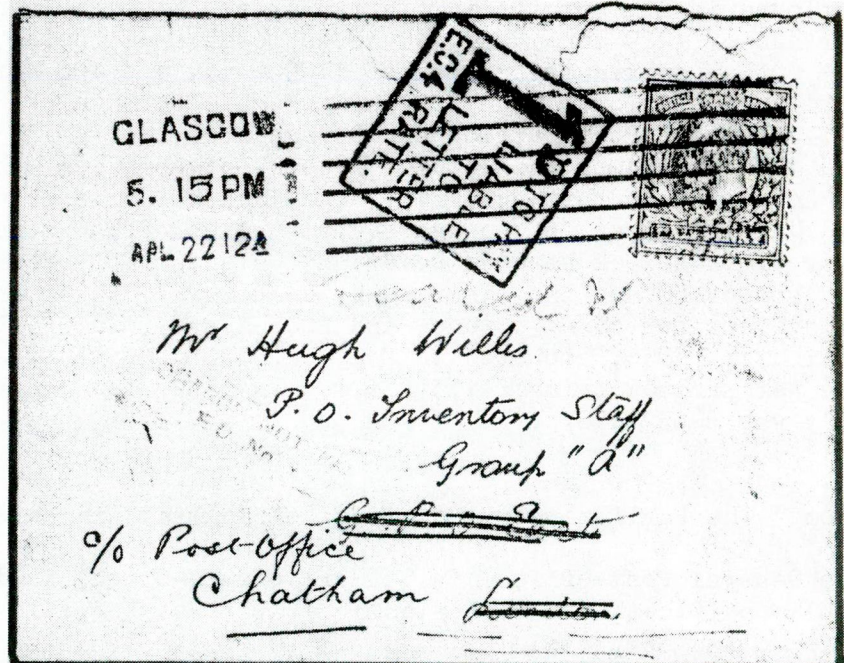 GLASGOW
5. 15 PM
APL 22 12A
E.C.4
LIABLE
TO
LETTER
RATE.
Mr Hugh Willis
P. O. Inventory Staff
Group "A"
G P O
c/o Post-Office
Chatham London